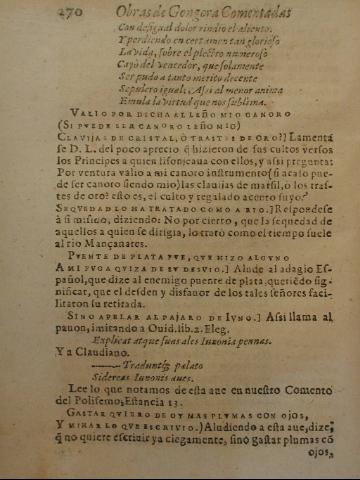 270 Obras de Gongora Comentadas
Con desigual dolor rindio el aliento.
Y perdiendo en certamen tan glorioso
La vida, sobre el plectro numeroso
Cayó del vencedor, que solamente
Ser pudo a tanto merito decente
Sepulcro igual: Assi al menor anima
Emula la virtud que nos sublima.
VALIO POR DICHA AL LEÑO MIO CANORO
(SI PUEDE SER CANORO LEÑO MIO)
CLAVIJAS DE CRISTAL, O TRASTES DE ORO?] Lamenta
se D. L. del poco aprecio q̃ hizieron de sus cultos versos
los Principes a quien lisonjeaua con ellos, y assi pregunta:
Por ventura valio a mi canoro instrumento (si acaso pue-
de ser canoro siendo mio) las clauijas de marfil, o los tras-
tes de oro? esto es, el culto y regalado acento suyo?
SEQVEDAD LO HA TRATADO COMO A RIO.] Respondese
à si mismo, diziendo: No por cierto, que la sequedad de
aquellos a quien se dirigia, lo trató como el tiempo suele
al rio Mançanares.
PVENTE DE PLATA FVE, QVE HIZO ALGVNO
A MI FVGA QVIZA DE SV DESVIO.] Alude al adagio Es-
pañol, que dize al enemigo puente de plata, queriẽdo sig-
nificar, que el desden y disfauor de los tales señores faci-
litaron su retirada.
SINO APELAR AL PAJARO DE IVNO.] Assi llama al
pauon, imitando a Ouid. lib. 2. Eleg.
Explicat atque suas ales Iunonia pennas.
Y a Claudiano.
Traduntq; palato
Sidereas Iunonis aues.
Lee lo que notamos de esta aue en nuestro Comento
del Polifemo, Estancia 13.
GASTAR QVIERO DE OY MAS PLVMAS CON OJOS,
Y MIRAR LO QVE ESCRIVIO.] Aludiendo a esta aue, dize;
q̃ no quiere escriuir ya ciegamente, sinó gastar plumas cõ
ojos,